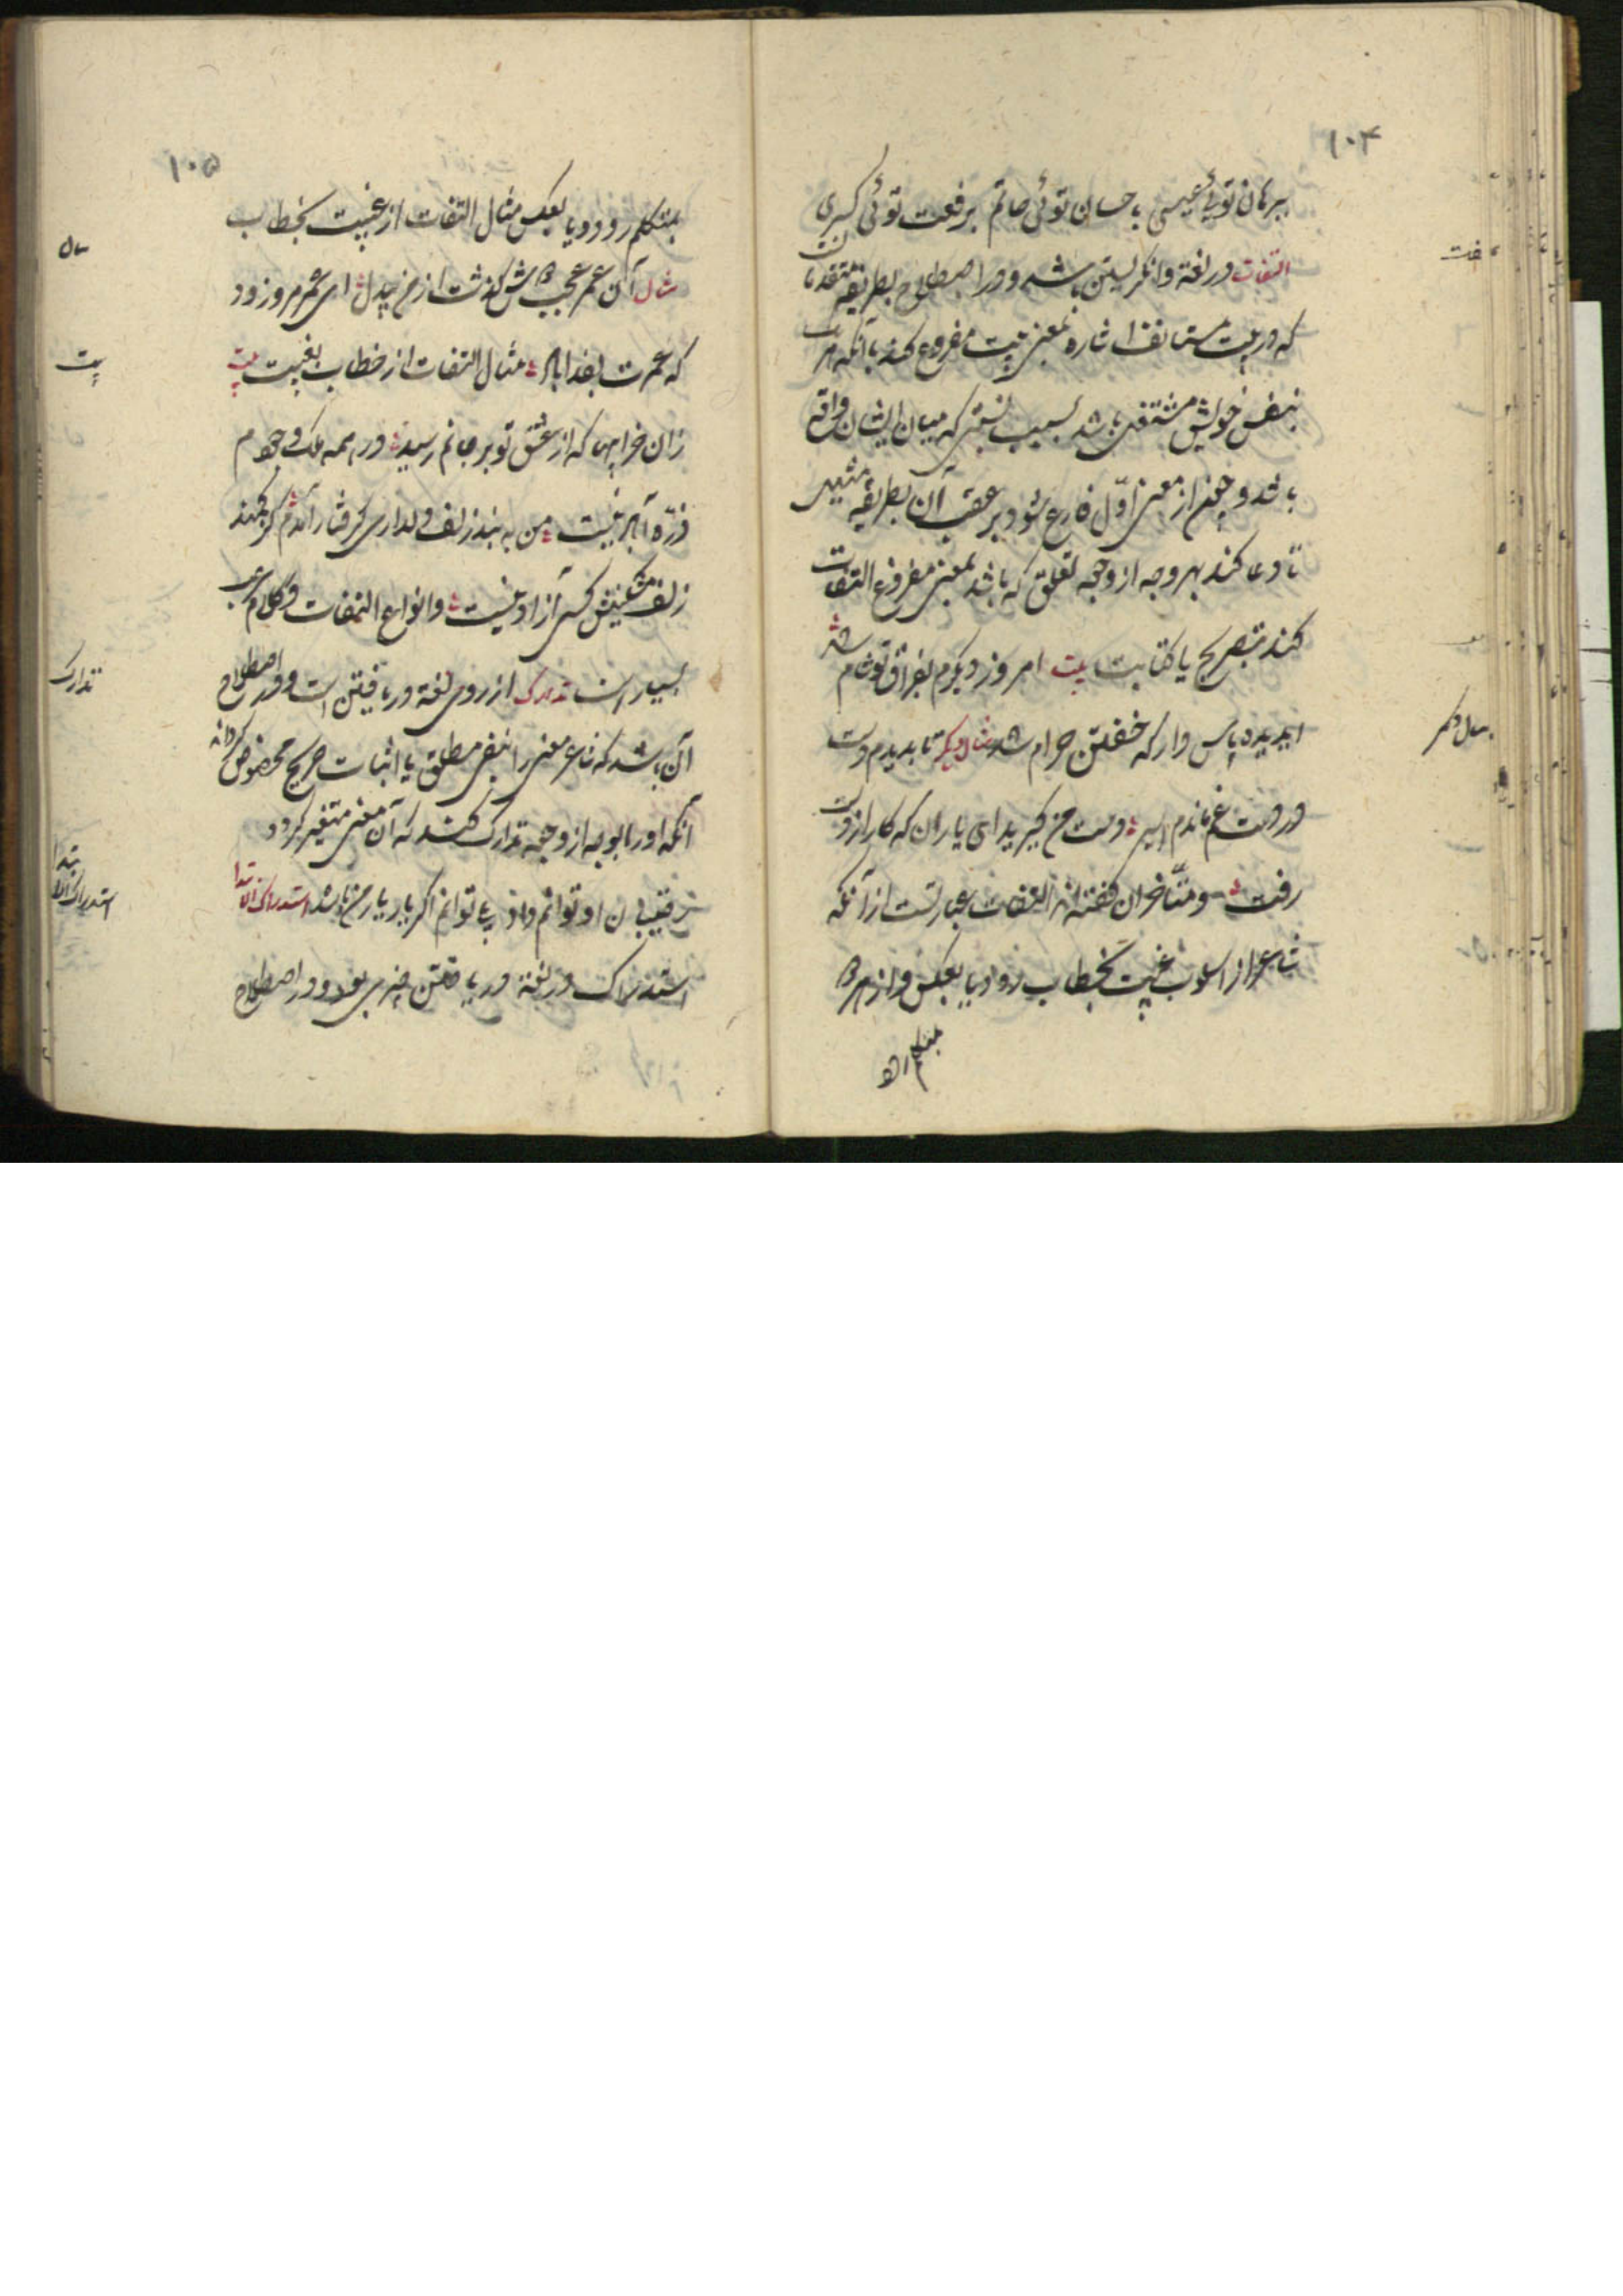 ۱۰۴
ببرهان توئی عیسی باحسان توئی حاتم برفعت توئی کسری
التفات در لغة وانگریستن باشد و در اصطلاح بطریقه متقدمان آنست
که در بیت مستانف اشاره بمعنی بیت مفروغ کند باآنکه هر یک
بنفس خویش مستقل باشد بسبب نسبتی که میان ایشان واقع
باشد و چون از معنی اوّل فارغ شود بر عقب آن بطریقه مثل
یا دعا کند بهر وجه از وجه تعلق که باشد بمعنی مفروغ التفات
کند بتصریح یا کنایت بیت امروز دیگرم بفراق تو شام شد
ایدیده پاس دار که خفتن حرام شد مثال دیگر تا بدیدم دست
در دست غم ماندم اسیر دست من گیرید ای یاران که کار از دست
رفت و متأخران گفته‌اند التفات عبارتست از آنکه
شاعر از اسلوب غیبت بخطاب رود یا بعکس و از
بتکلم رود
التفات
مثال دیگر
۱۰۵
بتکلم رود و یا بعکس مثال التفات از غیبت بخطاب
مثال آن عمر عجب خوش گذشت از من بیدل ای عمر مرو زود
که عمرت بفدا باد مثال التفات از خطاب بغیبت بیت
زان خرابیها که از عشق تو بر جانم رسید در همه ملک وجودم
ذرّه آباد نیست من به بند زلف دلداری گرفتار آمدم کز کمند
زلف مشکینش کسی آزاد نیست و انواع التفات در کلام عرب
بسیار است تدارک از روی لغة دریافتن است و در اصطلاح
آن باشد که شاعر معنی را بنفی مطلق یا اثبات صریح مخصوص گرداند
آنگه او را بوجه از وجه تدارک کند که آن معنی متغیر گردد
رقیبان او توانم داد توانم اگر یار یار من باشد استدراک الابتدا
استدراک در لغة دریافتن چیزی بود و در اصطلاح
مثال
بیت
تدارک
استدراک الابتدا